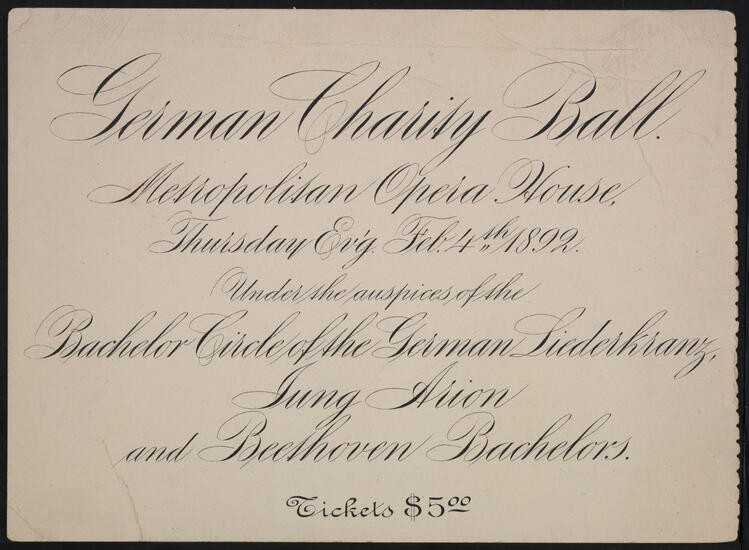 German Charity Ball.
Metropolitan Opera House,
Thursday Ev'g. Feb. 4th 1892.
Under the auspices of the
Bachelor Circle of the German Liederkranz,
Jung Arion
and Beethoven Bachelors.
Tickets $5.00